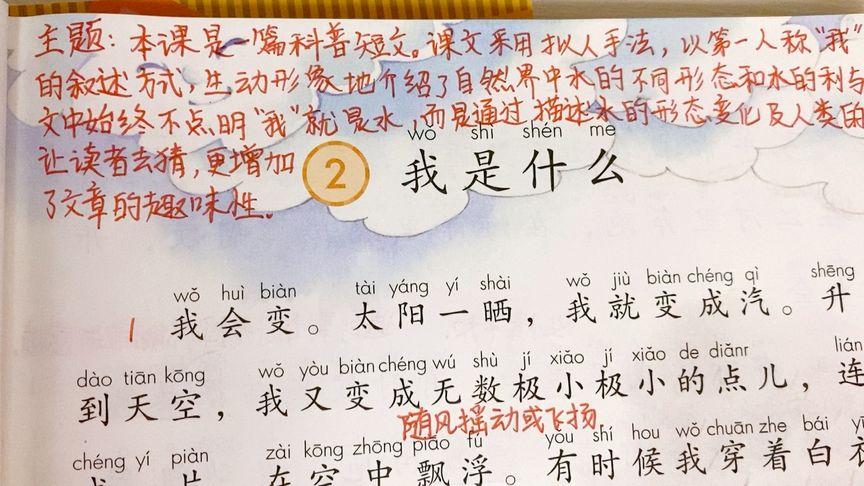 主题：本课是一篇科普短文。课文采用拟人手法，以第一人称“我”
的叙述方式，生动形象地介绍了自然界中水的不同形态和水的利与
文中始终不点明“我”就是水，而是通过描述水的形态变化及人类的
让读者去猜，更增加
了文章的趣味性。
wǒ shì shén me
2 我是什么
wǒ huì biàn tài yáng yí shài wǒ jiù biàn chéng qì shēng
1 我会变。太阳一晒，我就变成汽。升
dào tiān kōng wǒ yòu biàn chéng wú shù jí xiǎo jí xiǎo de diǎnr lián
到天空，我又变成无数极小极小的点儿，连
随风摇动或飞扬。
chéng yí piàn zài kōng zhōng piāo fú yǒu shí hou wǒ chuān zhe bái
成一片，在空中飘浮。有时候我穿着白衣